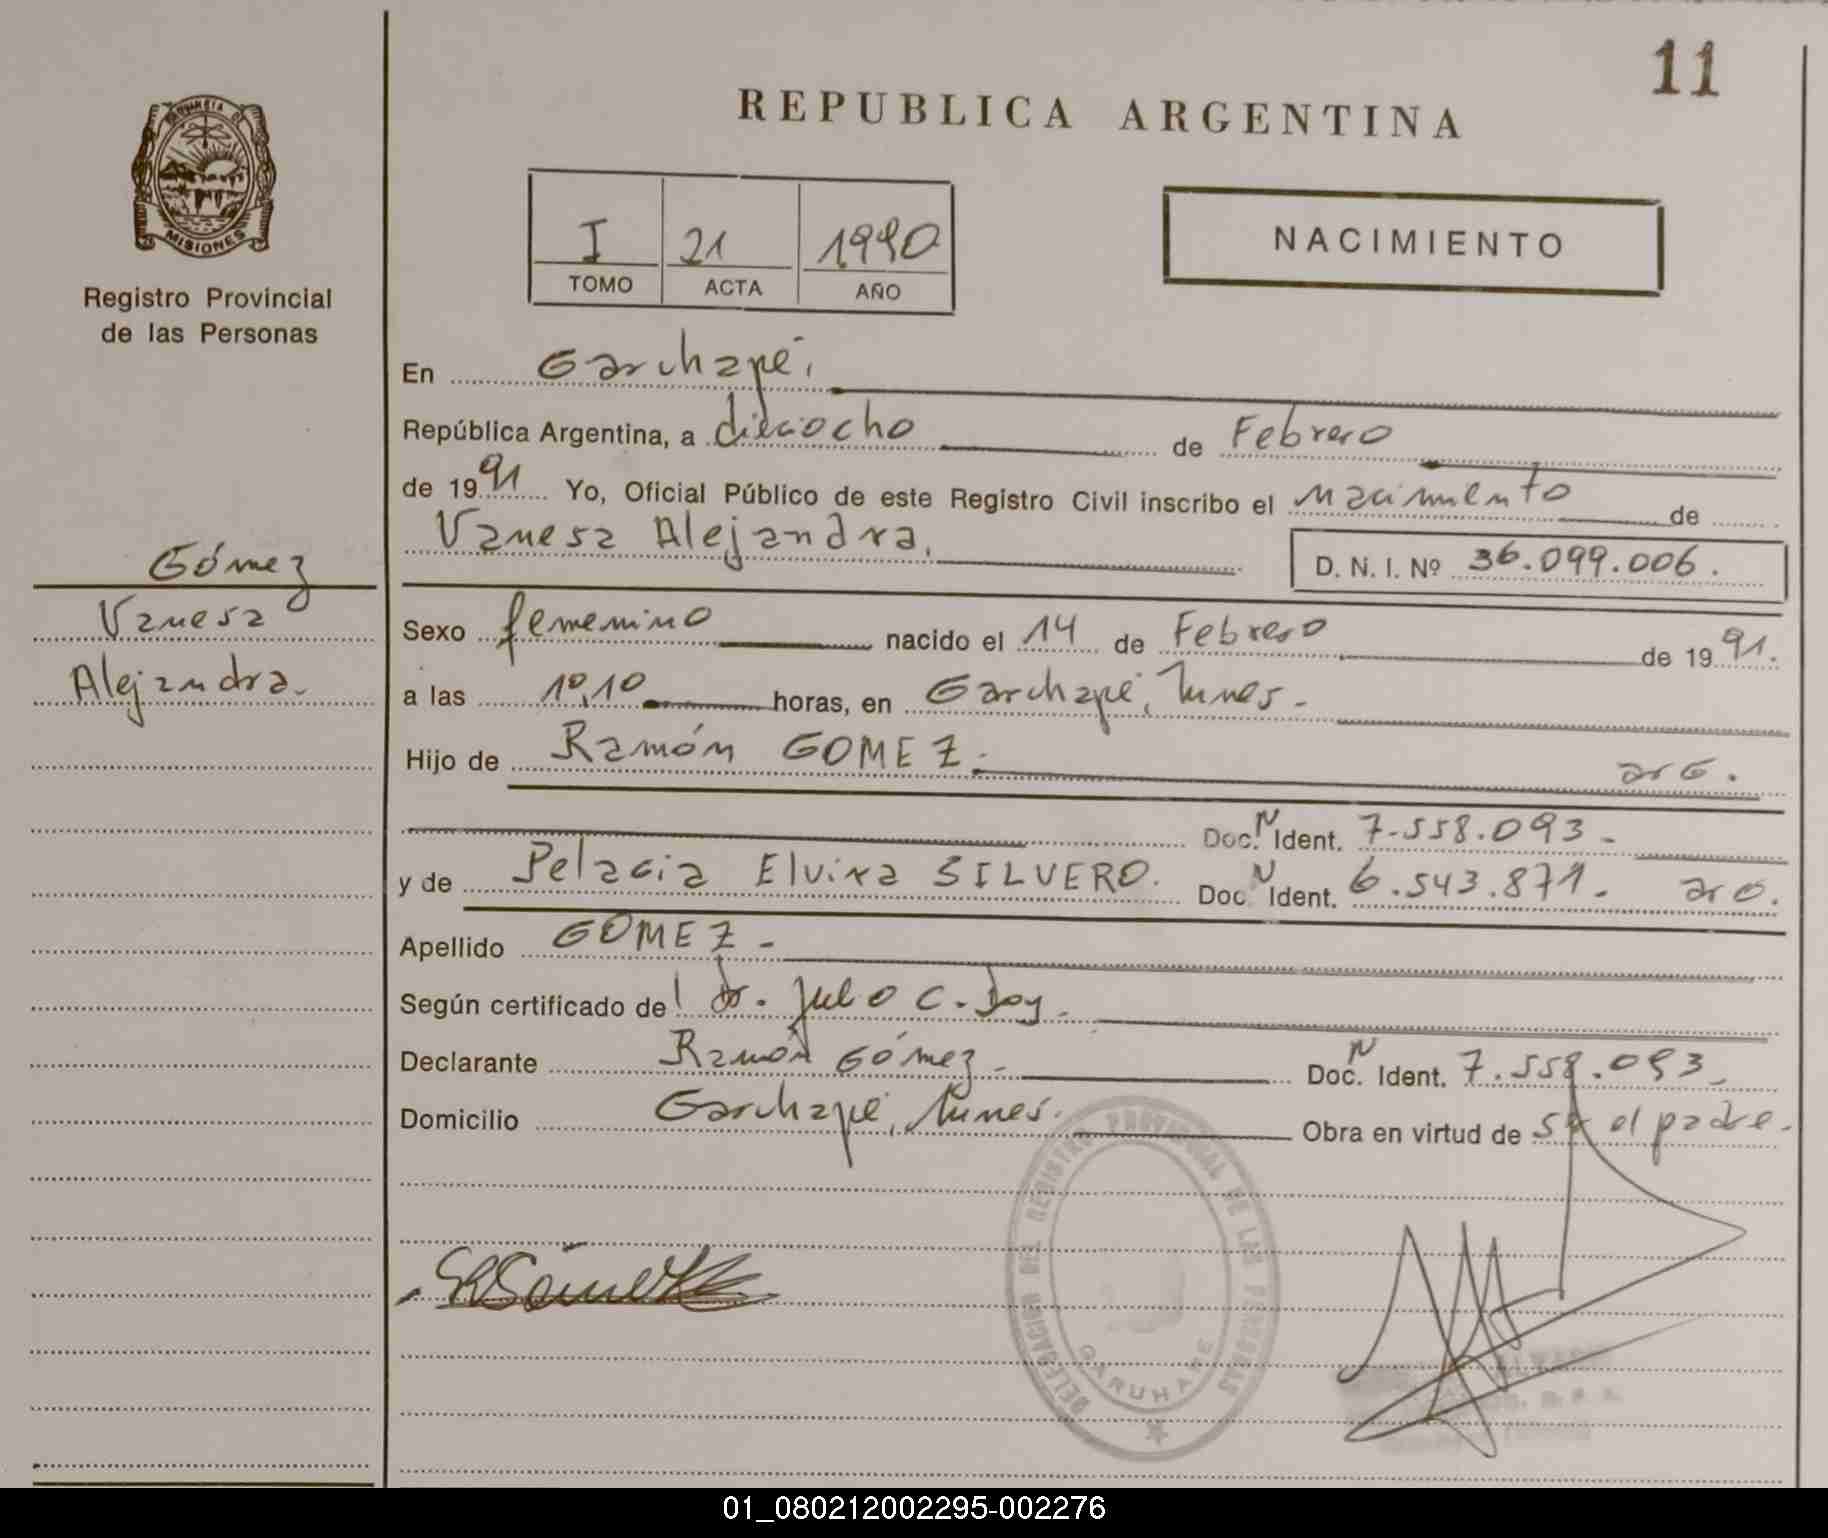 11
REPUBLICA ARGENTINA
PROVINCIA DE
MISIONES
Registro Provincial
de las Personas
I 21 1990
TOMO ACTA AÑO
NACIMIENTO
En Garuhapé,
República Argentina, a dieciocho de Febrero
de 1991 Yo, Oficial Público de este Registro Civil inscribo el nacimiento de
Vanesa Alejandra.
D. N. I. Nº 36.099.006.
Gómez
Vanesa
Alejandra.
Sexo femenino nacido el 14 de Febrero de 1991.
a las 10,10 horas, en Garuhapé,
Hijo de Ramón GOMEZ. arG.
Doc. N Ident. 7.558.093.
y de Pelagia Elvira SILVERO. Doc. N Ident. 6.543.871. arG.
Apellido GOMEZ.
Según certificado del dr. Julio C.
Declarante Ramón Gómez. Doc. N Ident. 7.558.093.
Domicilio Garuhapé, Obra en virtud de el padre.
DELEGACION DEL REGISTRO PROVINCIAL DE LAS PERSONAS
GARUHAPE
01_080212002295-002276